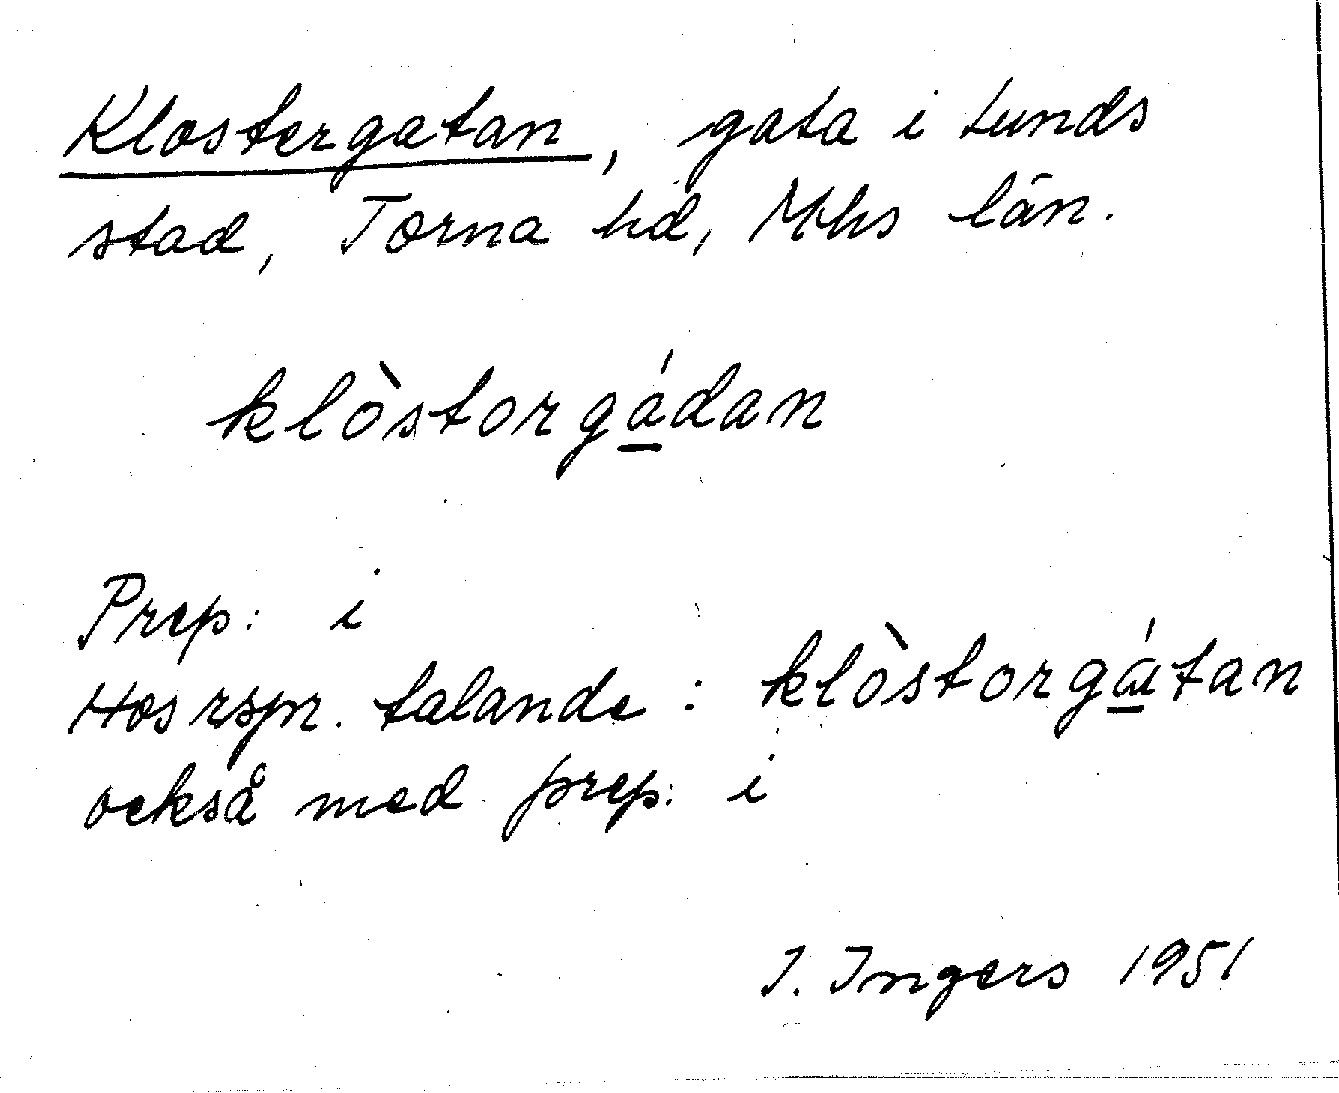 Klostergatan, gata i Lunds
stad, Torna hd, Mhs län.
klòstorgá̱dan
Prep: i
Hos rspr. talande: klòstorgá̱tan
också med prep: i
I. Ingers 1951